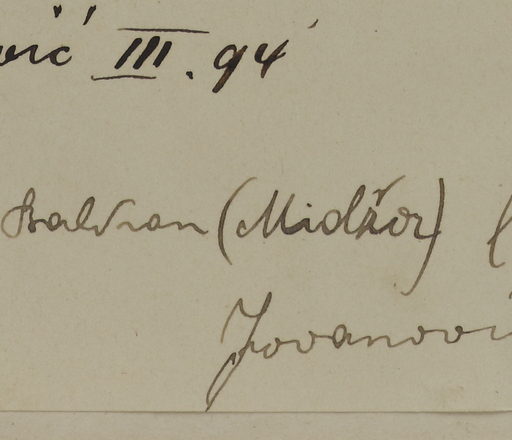 ović III. 94
Balkan (Midžor) (
Jovanovi